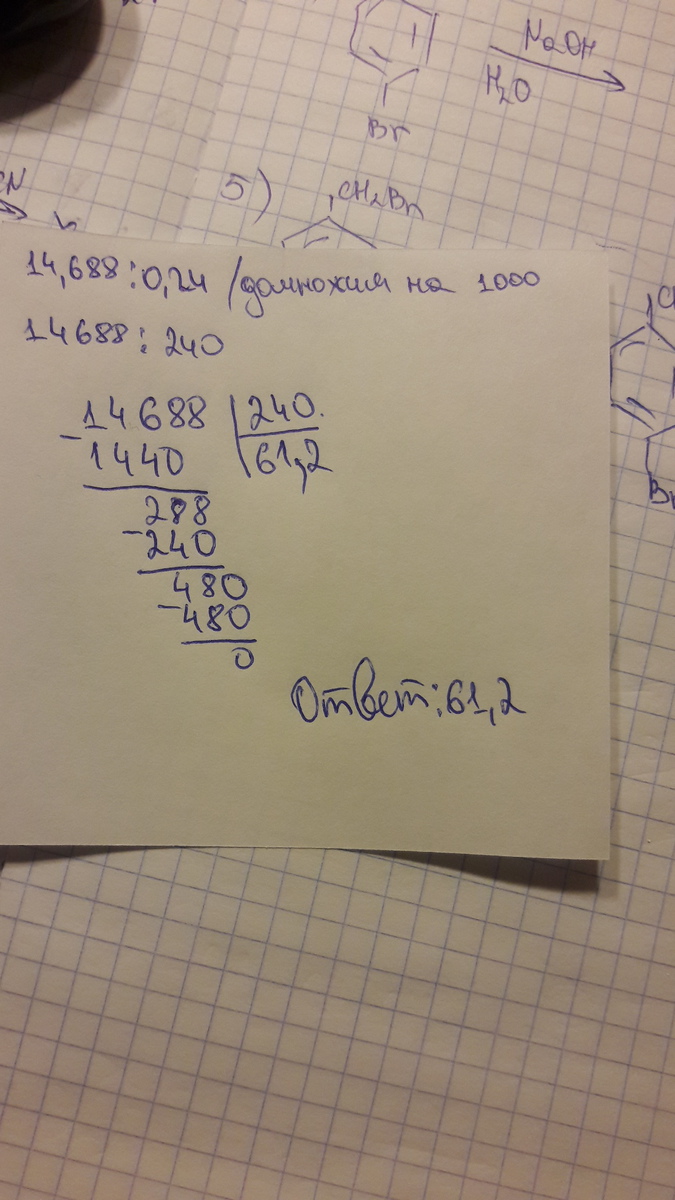 NaOH
H₂O
Br
CN
5)
CH₂Br
14,688:0,24 /домножим на 1000
14688:240
14688 | 240.
-1440 | 61,2
288
-240
480
-480
0
Ответ: 61,2
Br